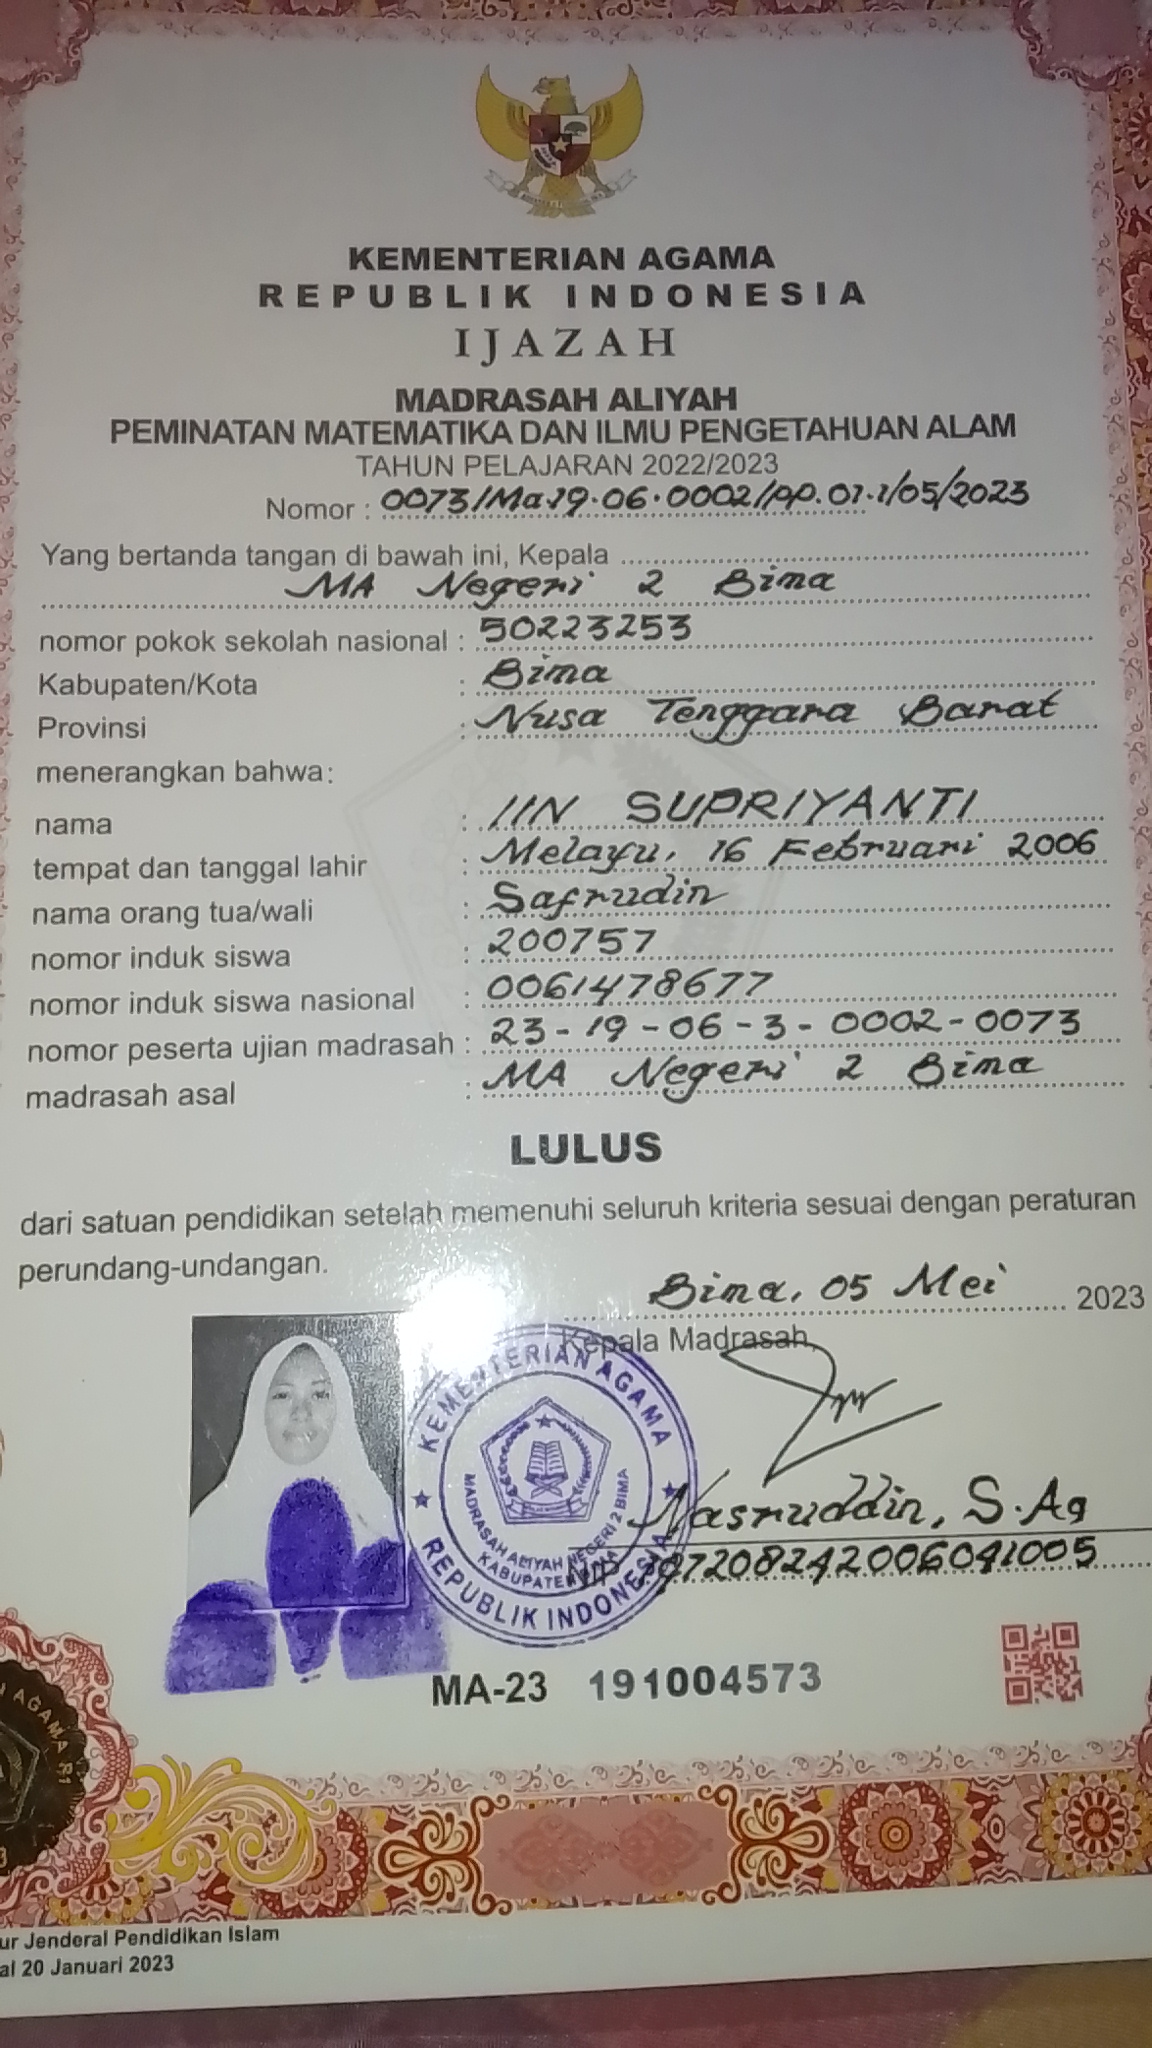 KEMENTERIAN AGAMA
REPUBLIK INDONESIA
IJAZAH
MADRASAH ALIYAH
PEMINATAN MATEMATIKA DAN ILMU PENGETAHUAN ALAM
TAHUN PELAJARAN 2022/2023
Nomor : 0073/Ma.19.06.0002/PP.01.1/05/2023
Yang bertanda tangan di bawah ini, Kepala
MA Negeri 2 Bima
nomor pokok sekolah nasional : 50223253
Kabupaten/Kota : Bima
Provinsi : Nusa Tenggara Barat
menerangkan bahwa:
nama : IIN SUPRIYANTI
tempat dan tanggal lahir : Melayu, 16 Februari 2006
nama orang tua/wali : Safrudin
nomor induk siswa : 200757
nomor induk siswa nasional : 0061478677
nomor peserta ujian madrasah : 23-19-06-3-0002-0073
madrasah asal : MA Negeri 2 Bima
LULUS
dari satuan pendidikan setelah memenuhi seluruh kriteria sesuai dengan peraturan
perundang-undangan.
Bima, 05 Mei 2023
Kepala Madrasah,
KEMENTERIAN AGAMA
MADRASAH ALIYAH NEGERI 2 BIMA
KABUPATEN
REPUBLIK INDONESIA
Nasruddin, S.Ag
NIP 197208242006041005
MA-23 191004573
AGAMA RI
ur Jenderal Pendidikan Islam
al 20 Januari 2023